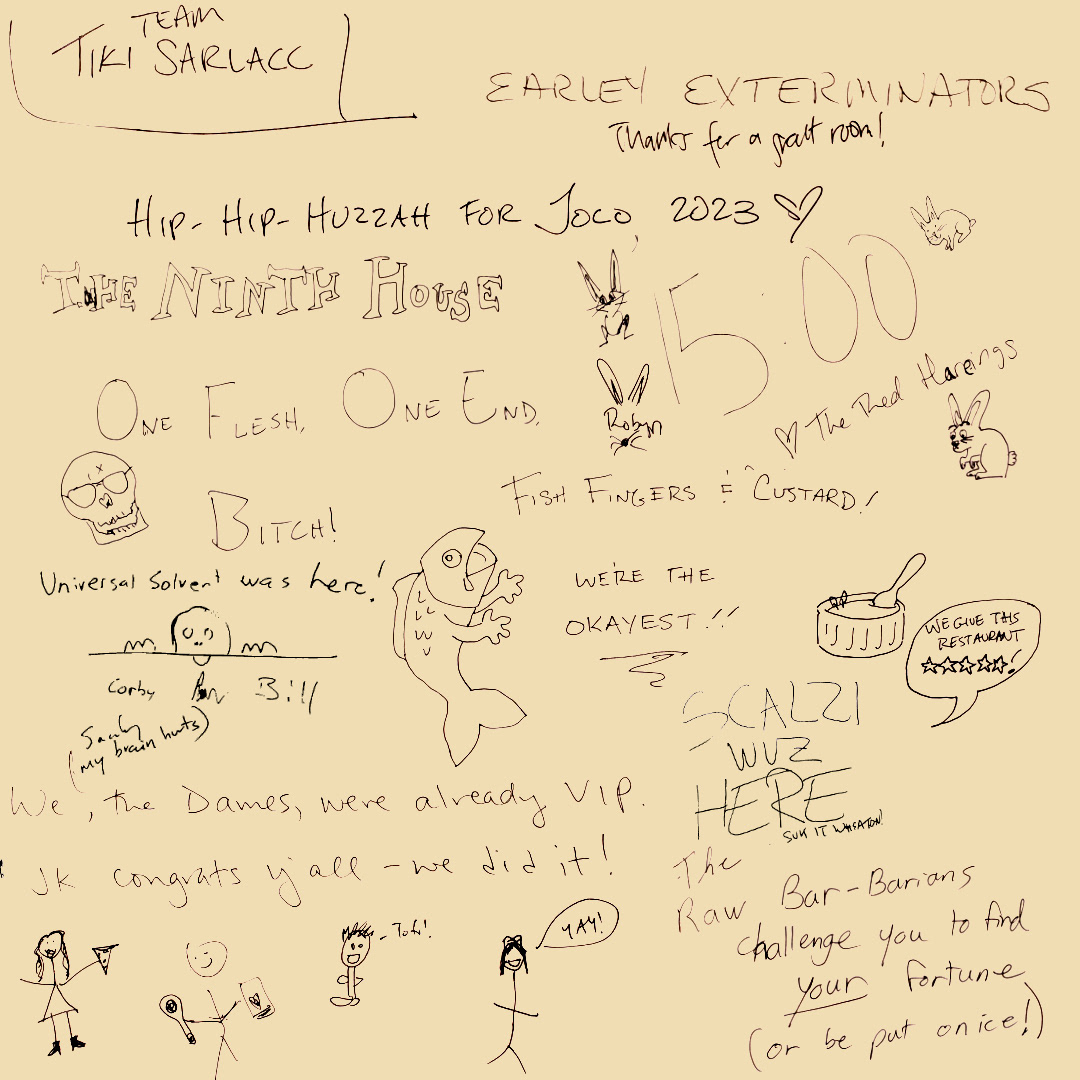 TEAM
TIKI SARLACC
EARLEY EXTERMINATORS
Thanks for a great room!
HIP-HIP-HUZZAH FOR JOCO 2023
THE NINTH HOUSE
ONE FLESH, ONE END,
BITCH!
15:00
♡ The Red Hareings
Robyn
FISH FINGERS & CUSTARD!
WE'RE THE
OKAYEST!!
WE GIVE THIS
RESTAURANT
☆☆☆☆☆!
Universal Solvent was here!
Corby
Bill
(my brain hurts)
SCALZI
WUZ
HERE
SUK IT WHEATON!
We, the Dames, were already VIP.
JK congrats y'all - we did it!
- Tofu!
YAY!
The
Raw Bar-Barians
challenge you to find
your fortune
(or be put on ice!)